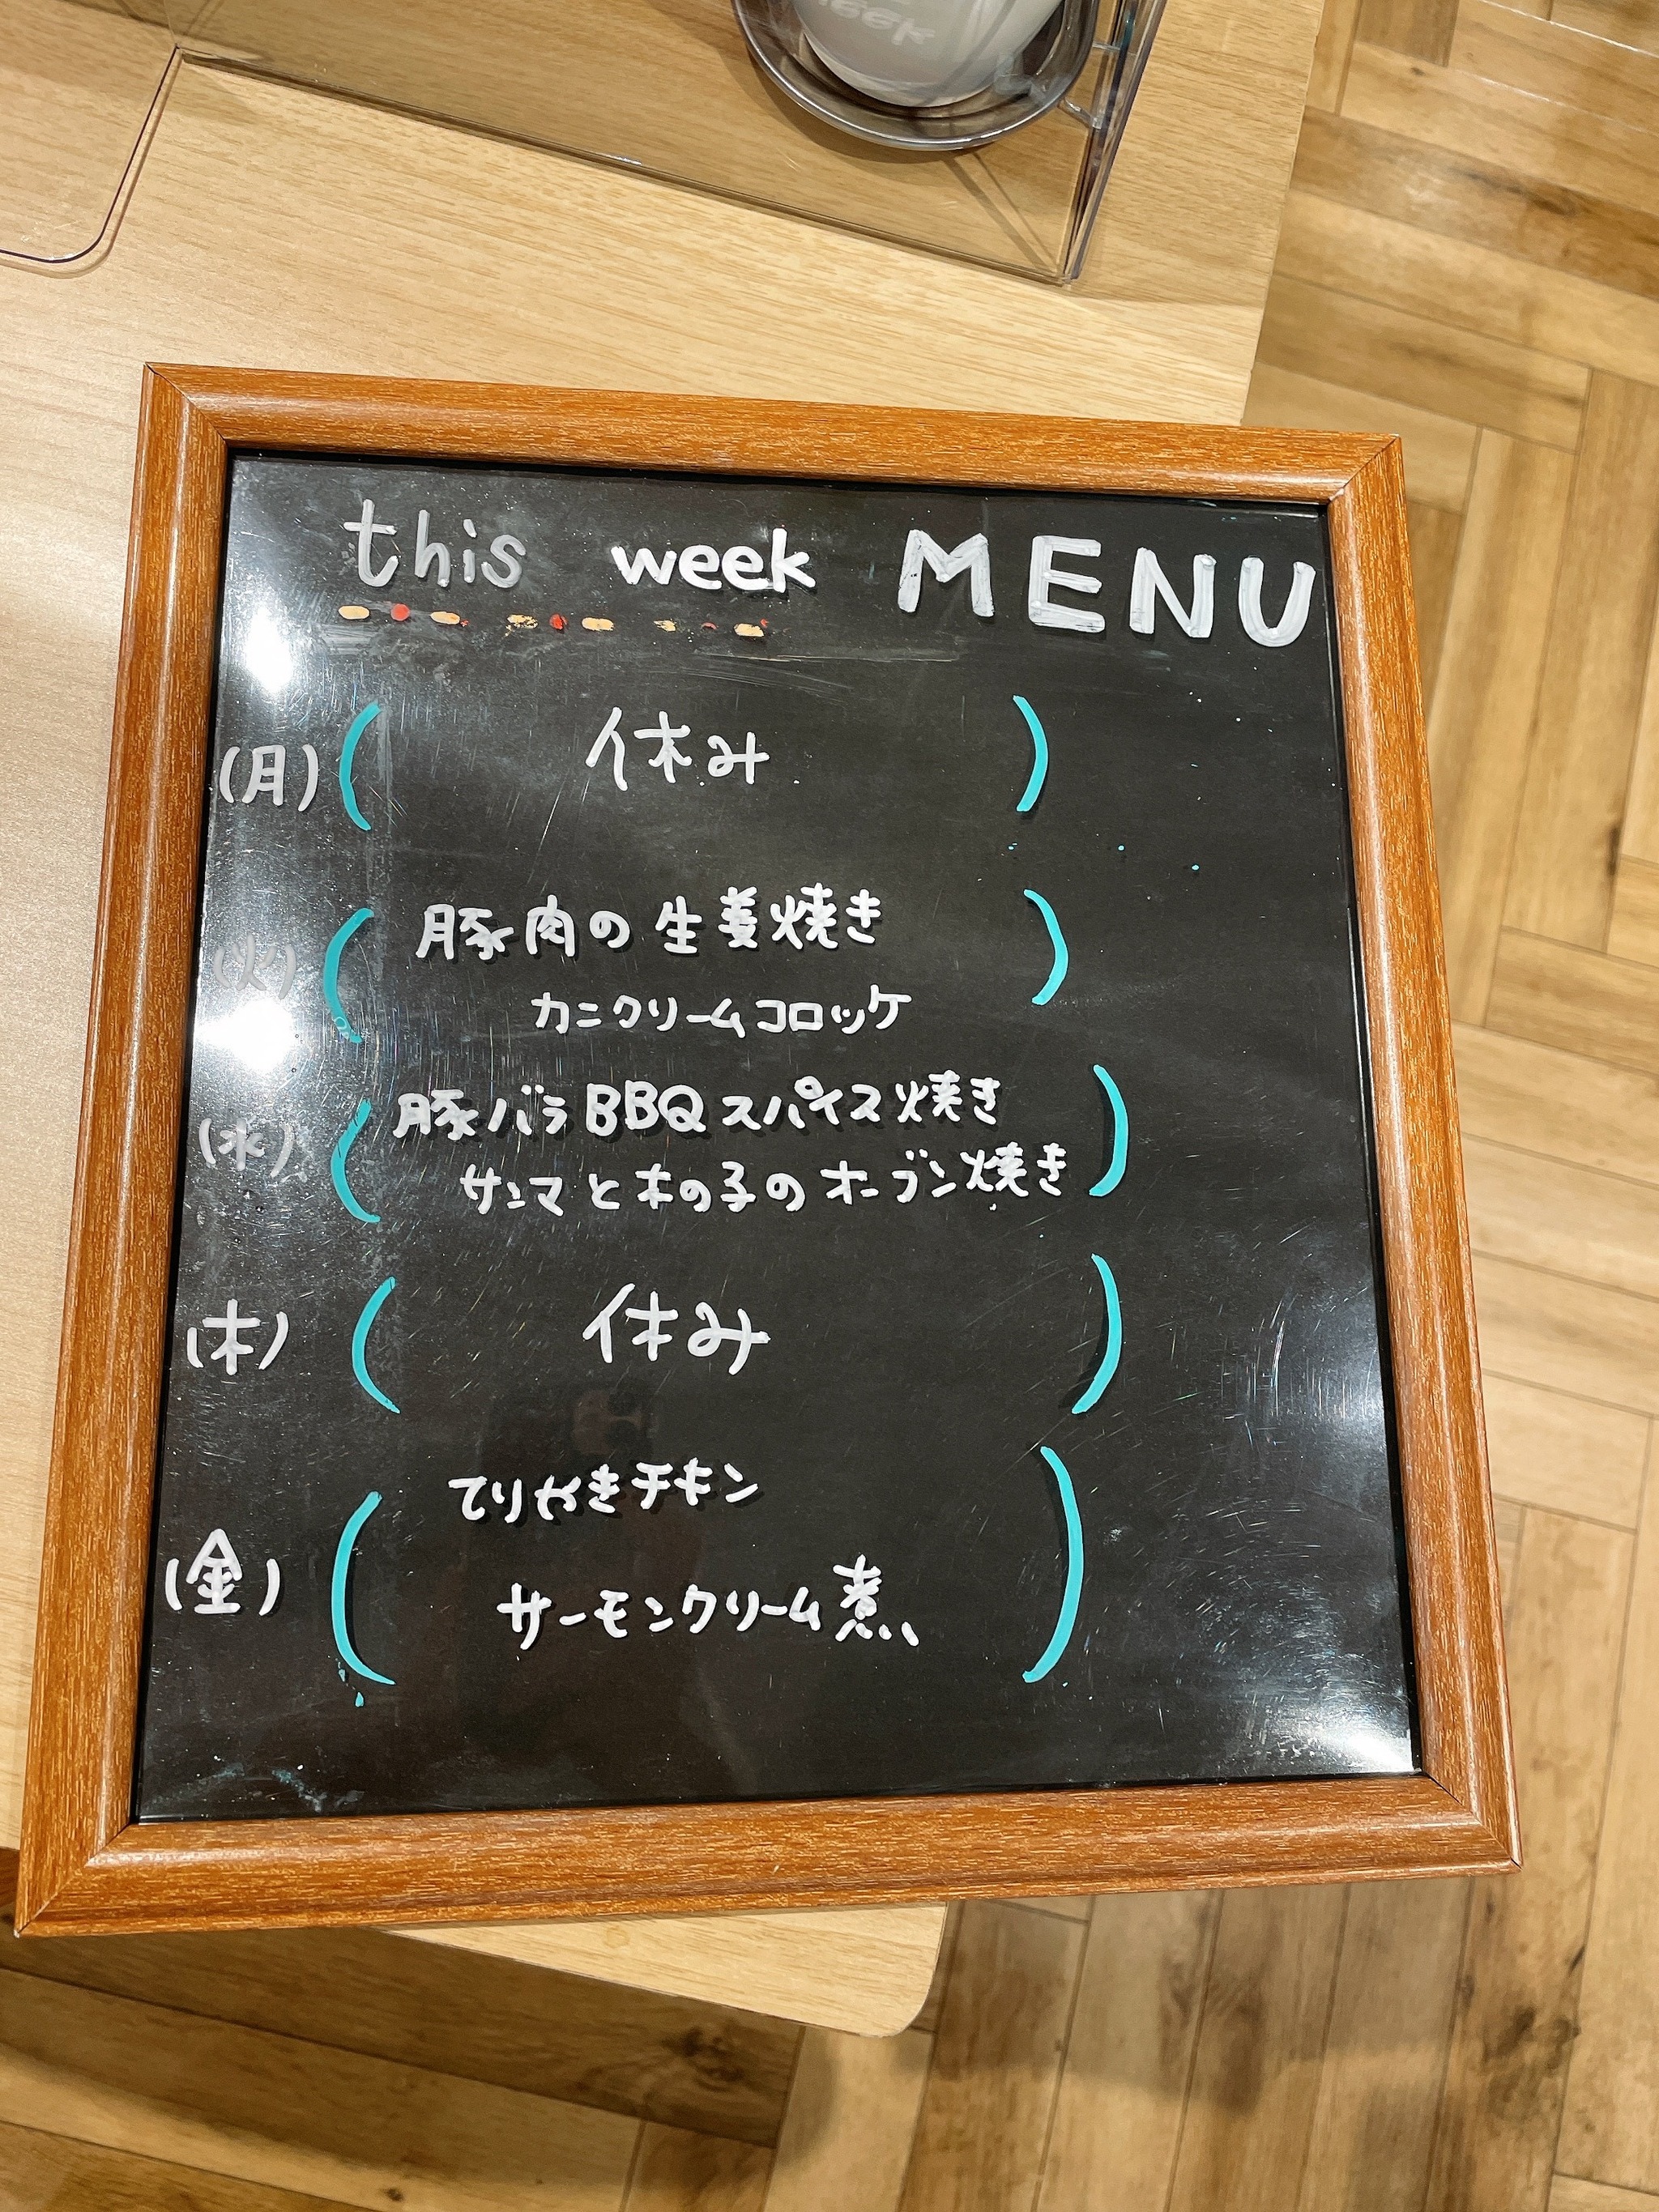 this week MENU
(月) ( 休み )
(火) ( 豚肉の生姜焼き
カニクリームコロッケ )
(水) ( 豚バラBBQスパイス焼き
サンマと木の子のオーブン焼き )
(木) ( 休み )
(金) ( てりやきチキン
サーモンクリーム煮 )